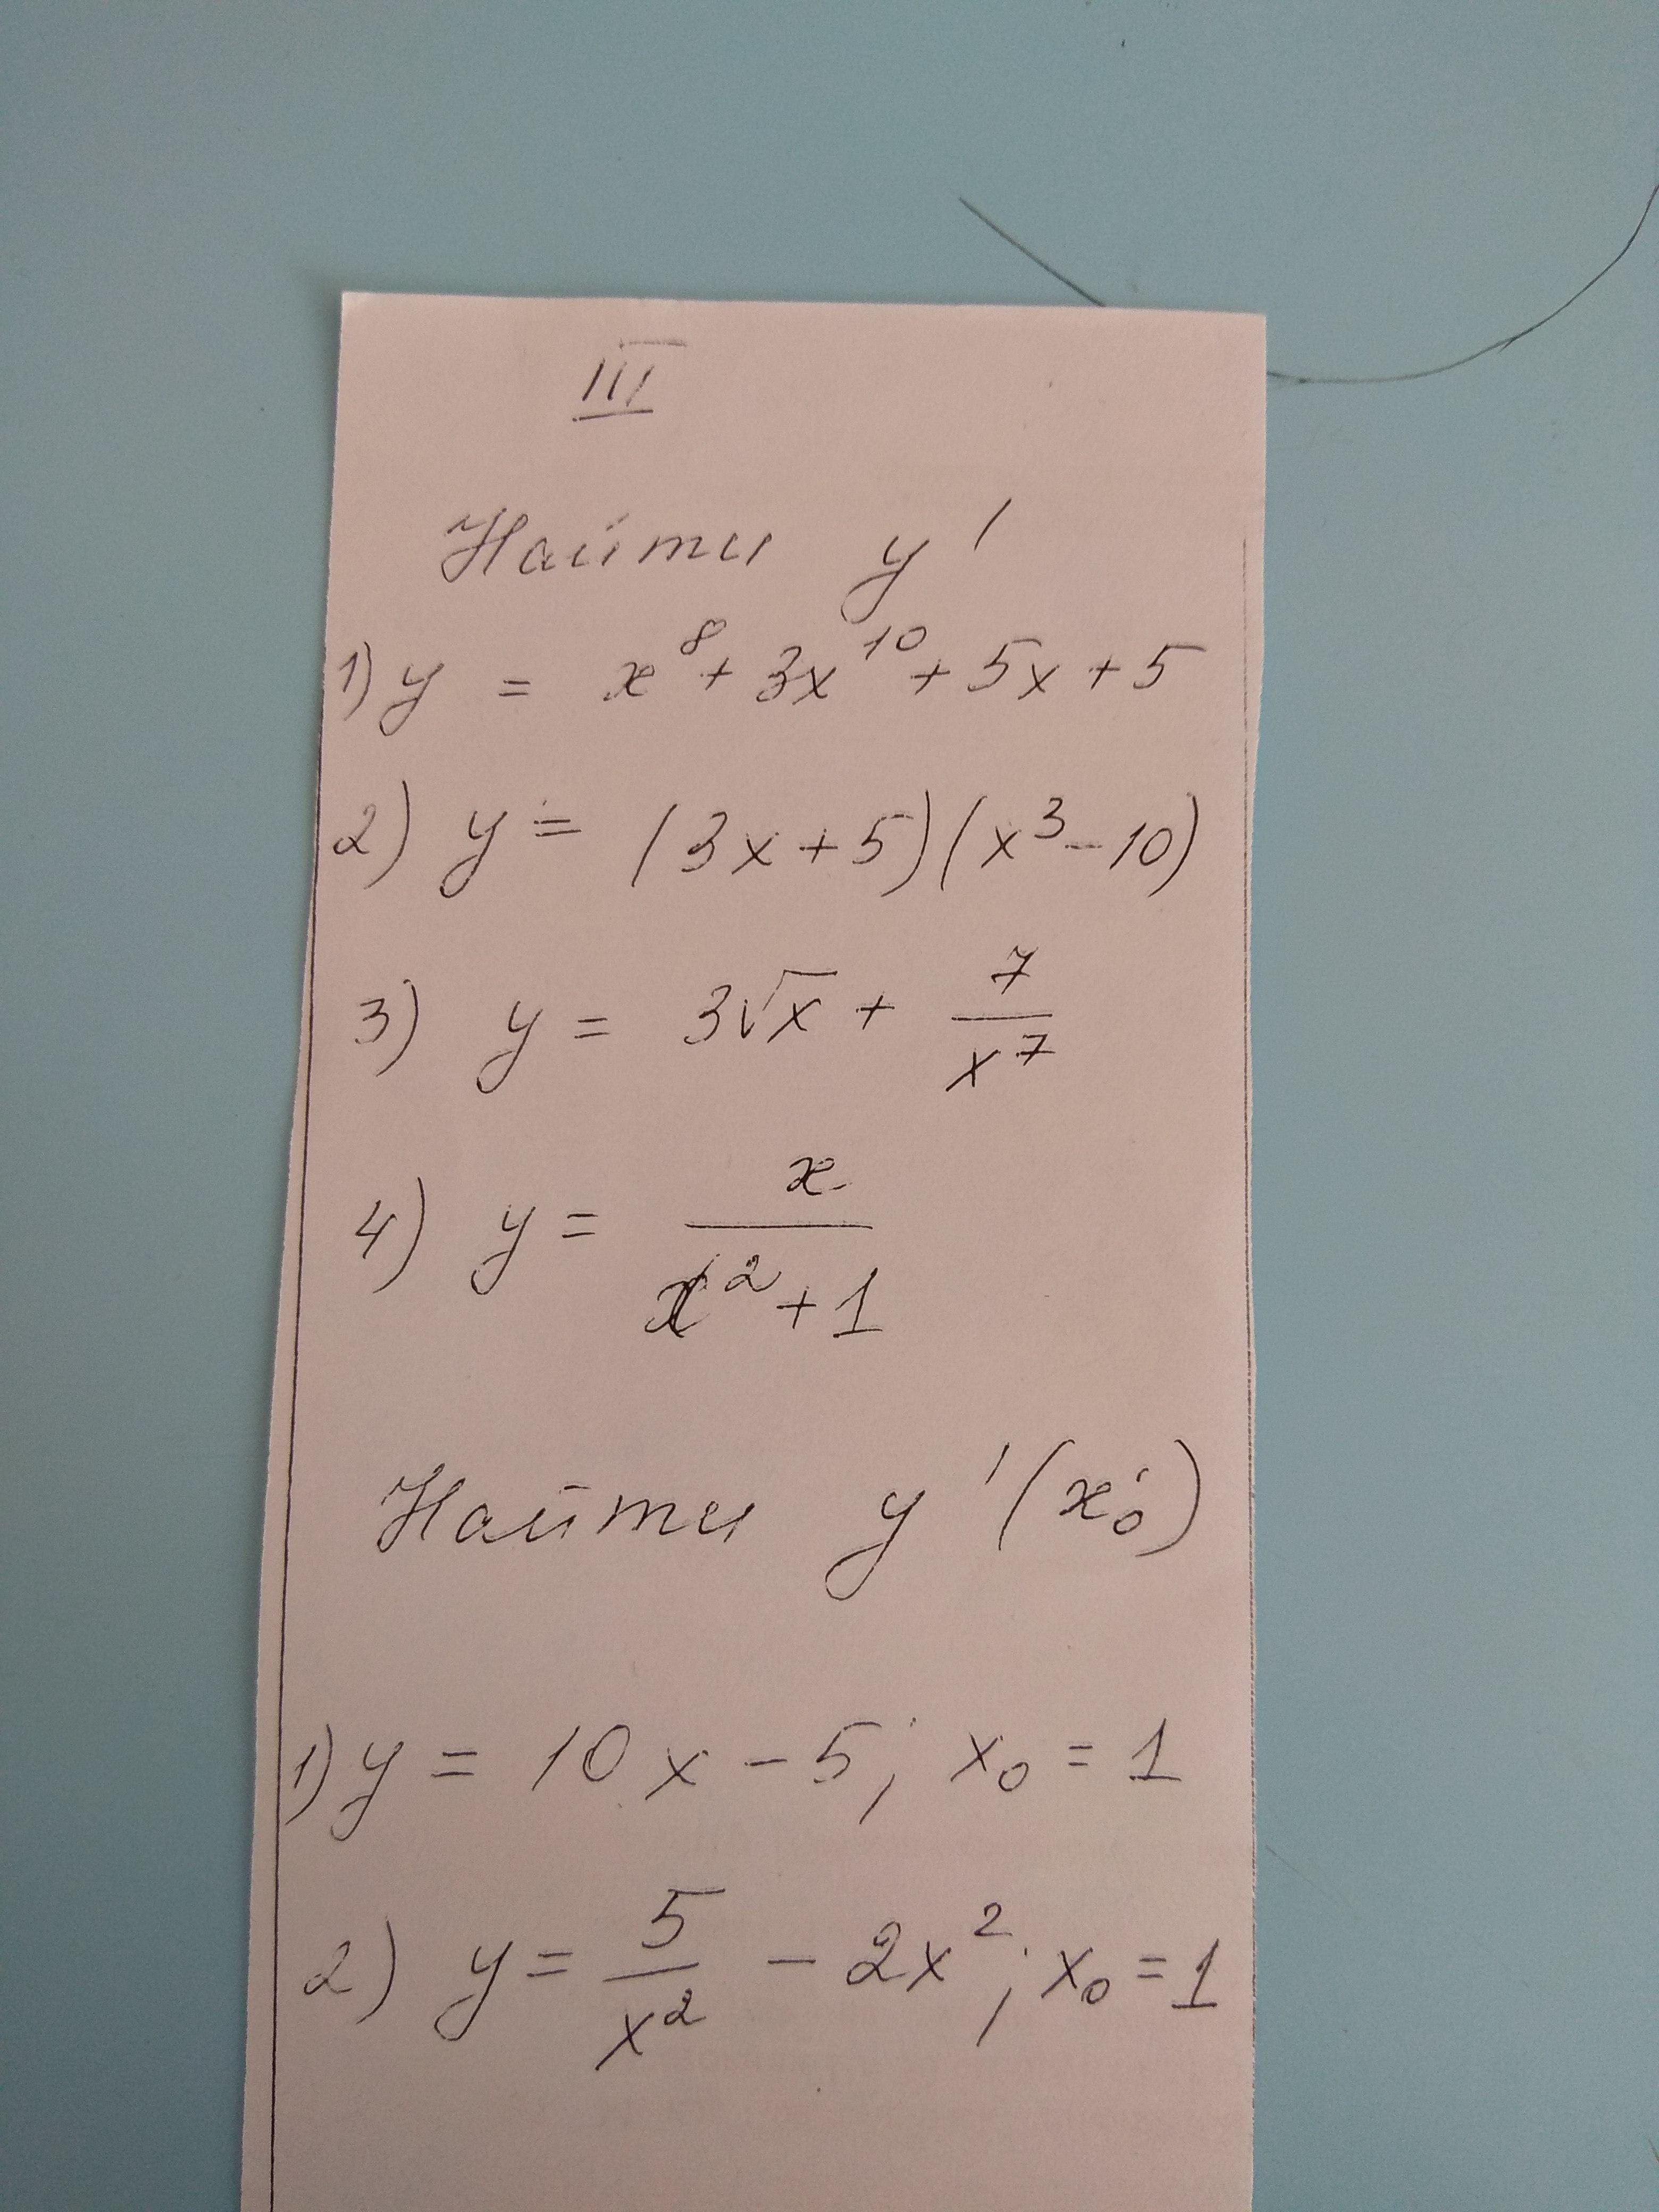 III
Найти y'
1) y = x⁸ + 3x¹⁰ + 5x + 5
2) y = (3x + 5)(x³ - 10)
3) y = 3√x + 7/x⁷
4) y = x/(x² + 1)
Найти y'(x₀)
1) y = 10x - 5; x₀ = 1
2) y = 5/x² - 2x²; x₀ = 1